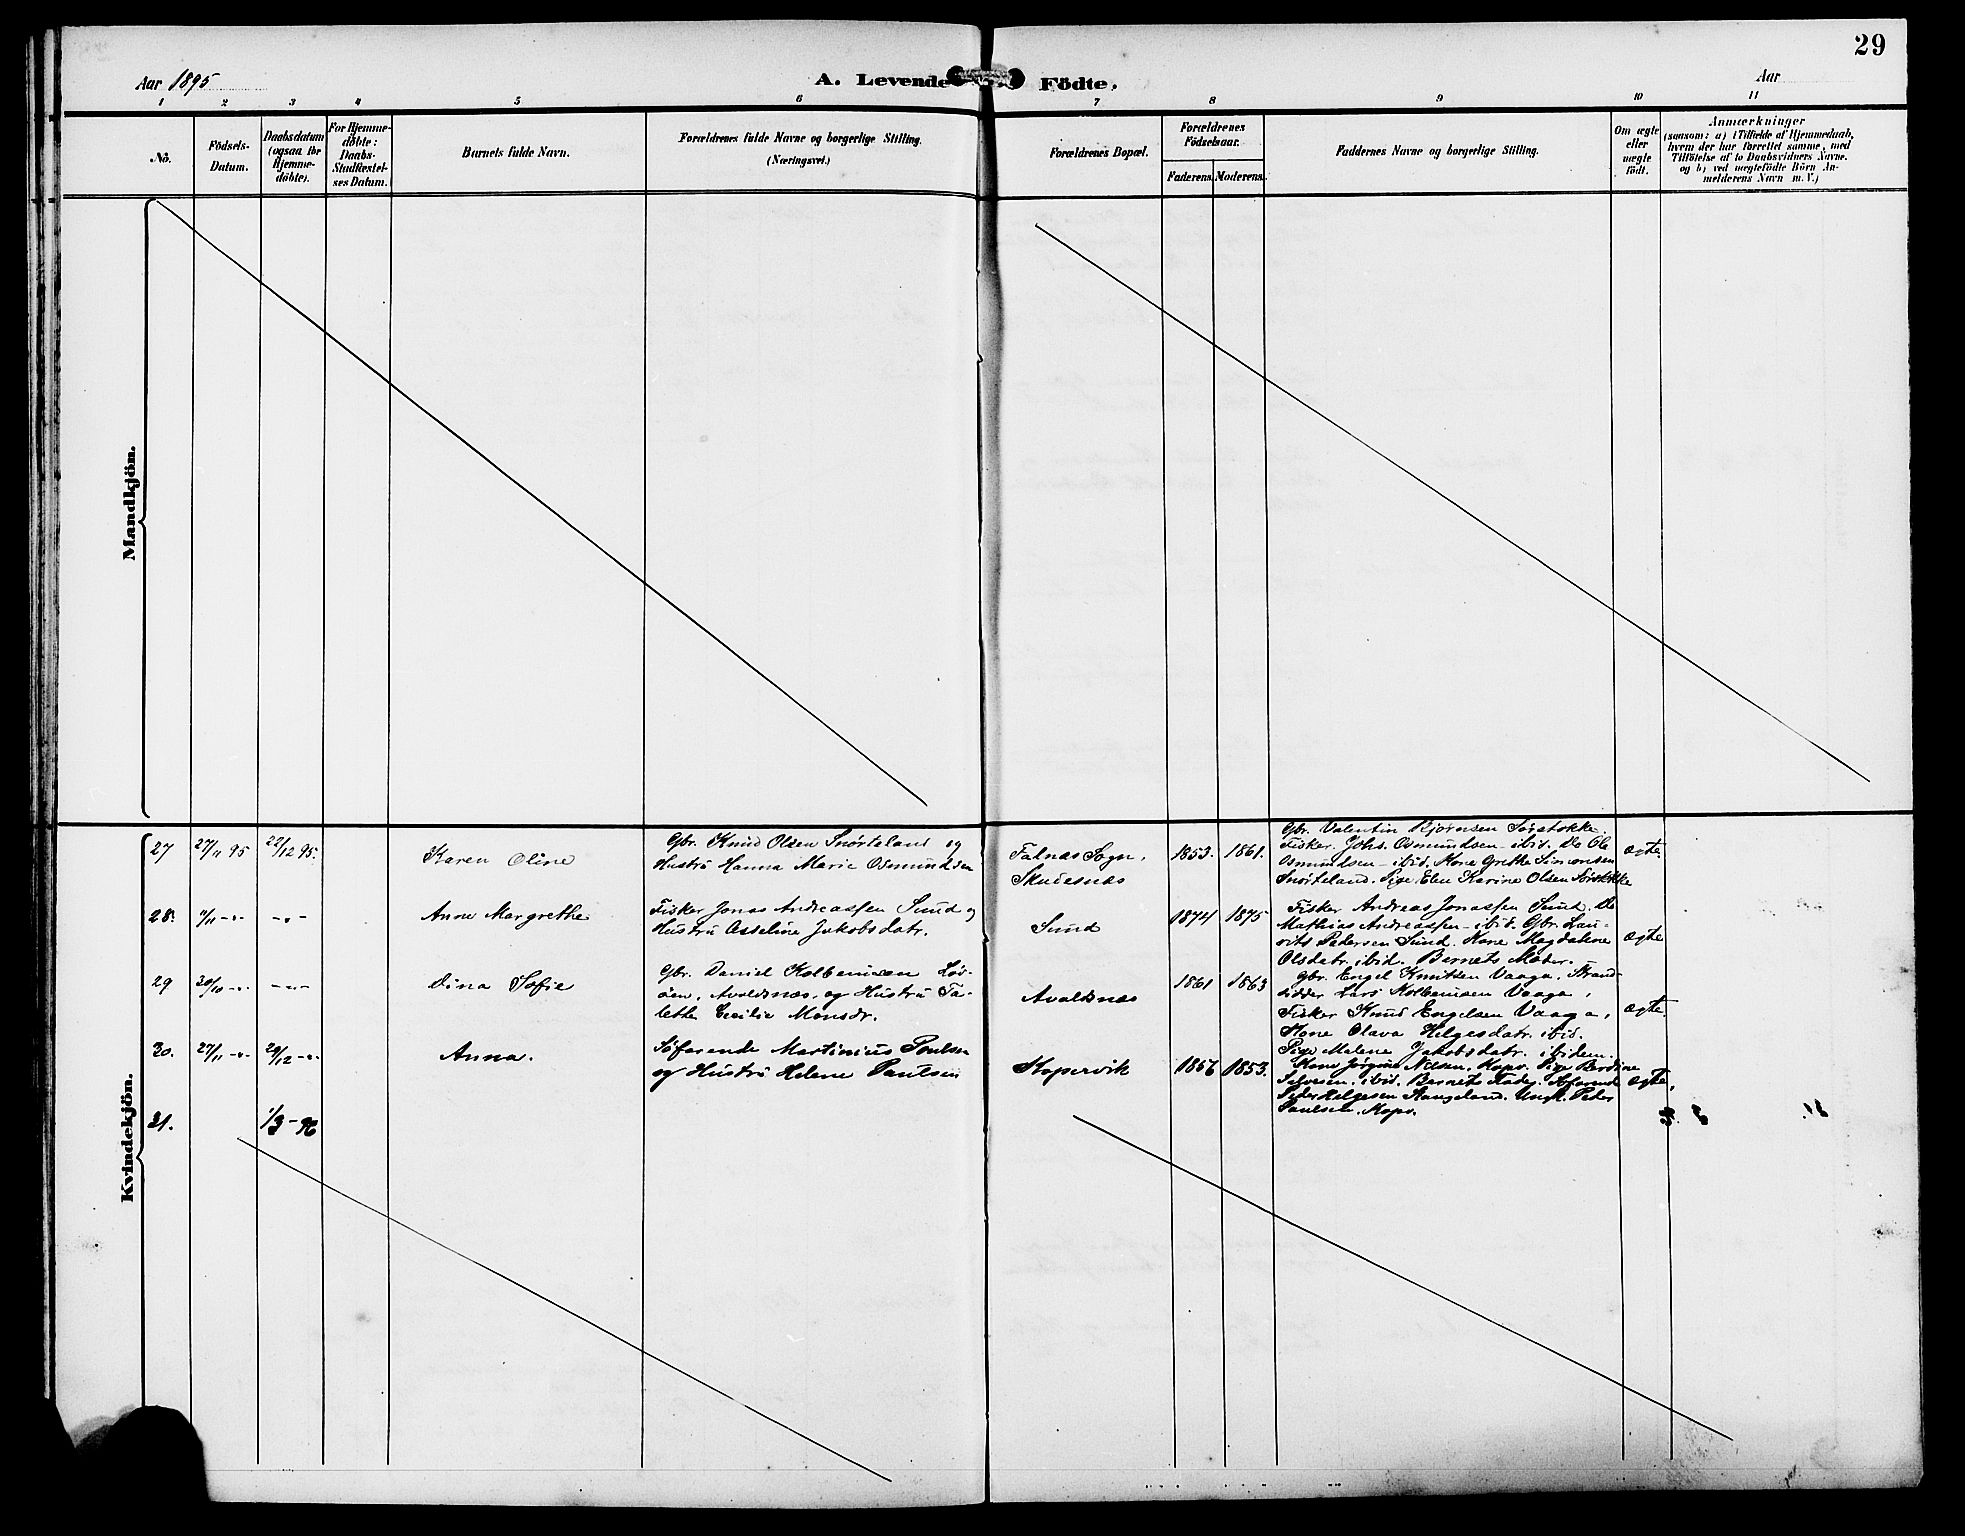 29
Aar 1895
A. Levende Fødte.
Aar
1 2 3 4 5 6 7 8 9 10 11
No.
Födsels-
Datum.
Daabsdatum
(ogsaa for
Hjemme-
döbte).
For Hjemme-
döbte:
Daabs-
Stadfæstel-
ses Datum.
Barnets fulde Navn.
Forældrenes fulde Navne og borgerlige Stilling.
(Næringsvei.)
Forældrenes Bopæl.
Forældrenes
Födselsaar.
Faderens. Moderens.
Faddernes Navne og borgerlige Stilling.
Om ægte
eller
uægte
födt.
Anmærkninger
(saasom: a) i Tilfælde af Hjemmedaab,
hvem der har forrettet samme, med
Tilföielse af to Daabsvidners Navne.
og b) ved uægtefödte Börn An-
melderens Navn m. V.)
Mandkjön.
Kvindekjön.
27
27/11 95
22/12 95.
Karen Oline
Gbr. Knud Olsen Snørteland og
Hustru Hanna Marie Osmundsen
Falnæs Sogn,
Skudesnæs
1853.
1861.
Gbr. Valentin Bjørnsen Sørstokke.
Fisker Johs. Osmundsen - ibid. Do Ole
Osmundsen - ibid. Kone Grethe Simonsen
Snørteland. Pige Elen Karine Olsen Sørstokke
ægte.
28.
7/11 -"-
-"-
Anne Margrethe
Fisker Jonas Andreassen Sund og
Hustru Asseline Jakobsdatr.
Sund
1874
1875
Fisker Andreas Jonassen Sund. Do
Mathias Andreassen - ibid. Gbr. Lau-
rits Pedersen Sund. Kone Magdalene
Olsdatr. ibid. Barnets Moder.
ægte
29
20/10 -"-
-"-
Dina Sofie
Gbr. Daniel Kolbensen Løv-
öen, Avaldsnæs, og Hustru Ta-
lette Cecilie Monsdr.
Avaldsnæs
1861
1863
Gbr. Engel Knutsen Vaaga, Strand-
sidder Lars Kolbensen Vaaga,
Fisker Knud Engelsen Vaaga,
Kone Olava Helgesdatr. ibid.
Pige Malene Jakobsdatr. ibidem.
ægte.
30.
27/11 -"-
29/12 -"-
Anna.
Søfarende Martinius Poulsen
og Hustru Helene Paulsen
Kopervik
1856
1853.
Kone Jørgine Nilsen, Kopv. Pige Berdine
Salvesen. ibid. Barnets Fader. Søfarende
Peder Helgesen Stangeland. Ungk. Peder
Paulsen. Kopv.
ægte,
31.
1/3 - 96